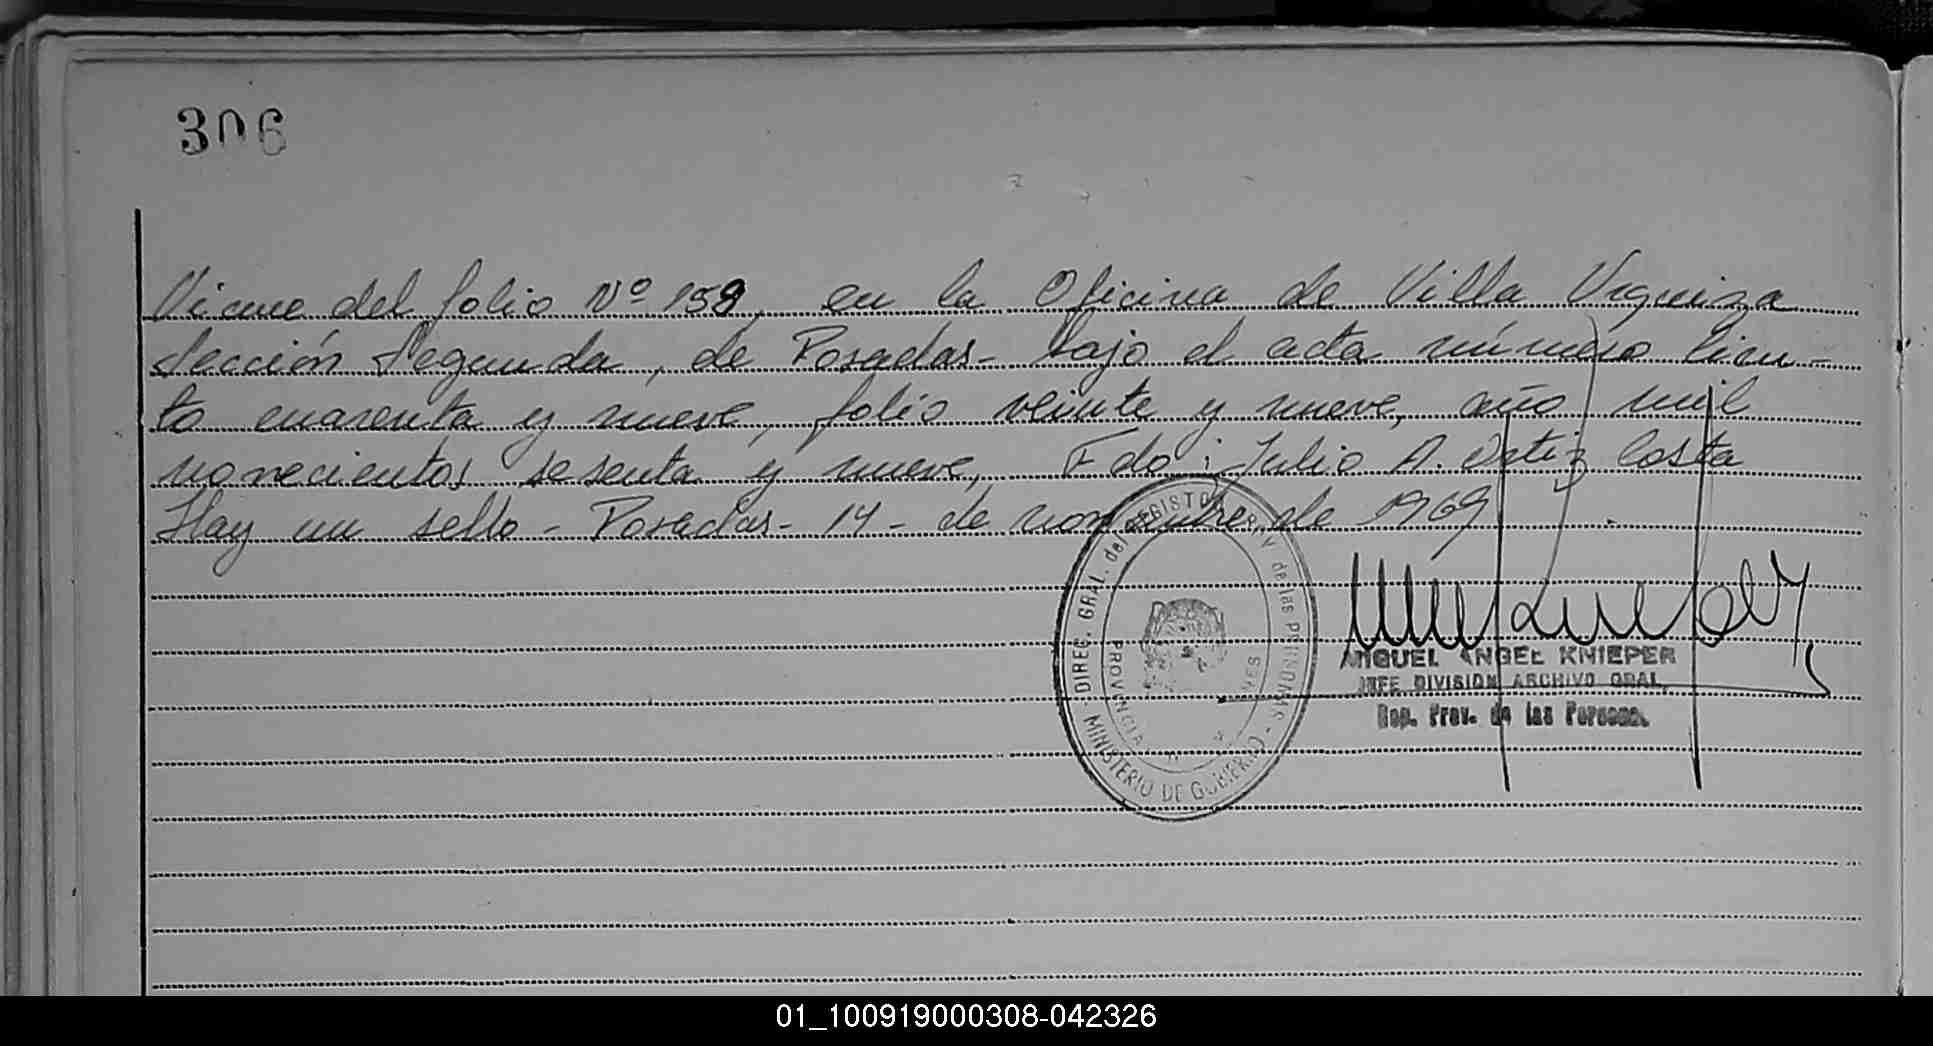 306
Viene del folio Nº 158, en la Oficina de Villa Urquiza
Sección Segunda, de Posadas- bajo el acta número Cien-
to cuarenta y nueve, folio veinte y nueve, año mil
novecientos sesenta y nueve, Fdo: Julio A. Ortiz Costa
Hay un sello - Posadas - 14 - de noviembre de 1969
DIREC. GRAL. del REGISTRO de las PERSONAS - MINISTERIO DE GOBIERNO -
PROVINCIA
MIGUEL ANGEL KNIEPER
JEFE DIVISION ARCHIVO GRAL.
Rep. Prov. de las Personas.
01_100919000308-042326